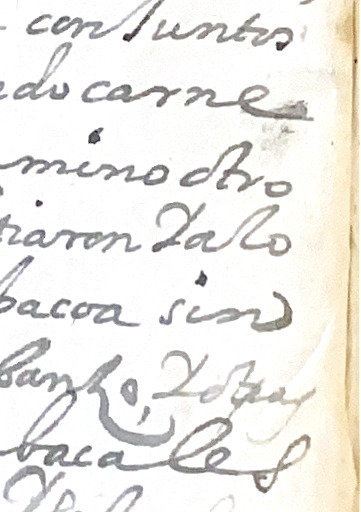 conjuntos
do carne
mino otro
tiaron Yalo
bacoa sin
banto, Yotras
bacales